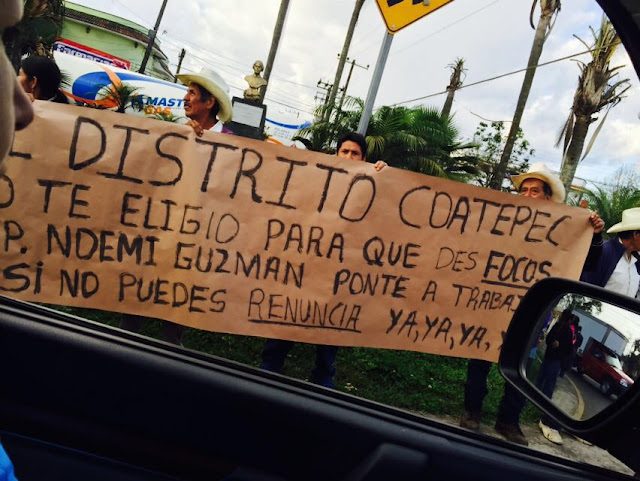 EL DISTRITO COATEPEC
NO TE ELIGIO PARA QUE DES FOCOS
P. NOEMI GUZMAN PONTE A TRABAJ
SI NO PUEDES RENUNCIA YA, YA, YA,
MASTER
GAS